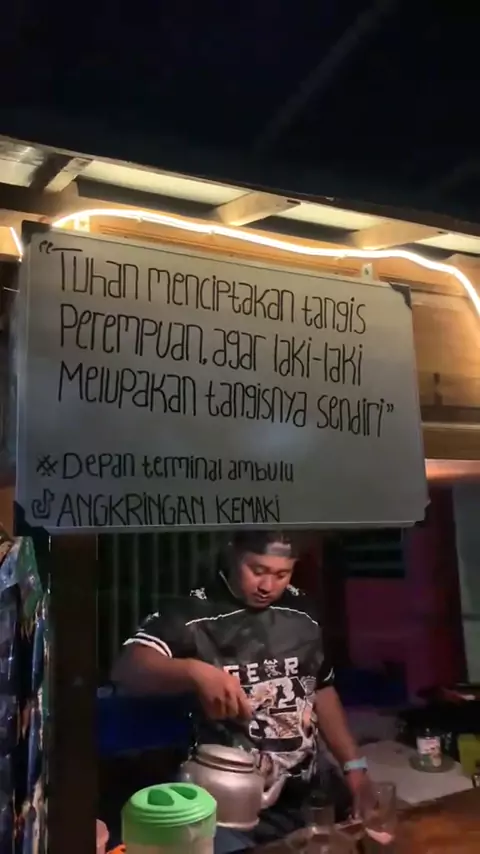 "Tuhan menciptakan tangis
Perempuan, agar laki-laki
Melupakan tangisnya sendiri"
※ Depan terminal ambulu
ANGKRINGAN KEMAKI